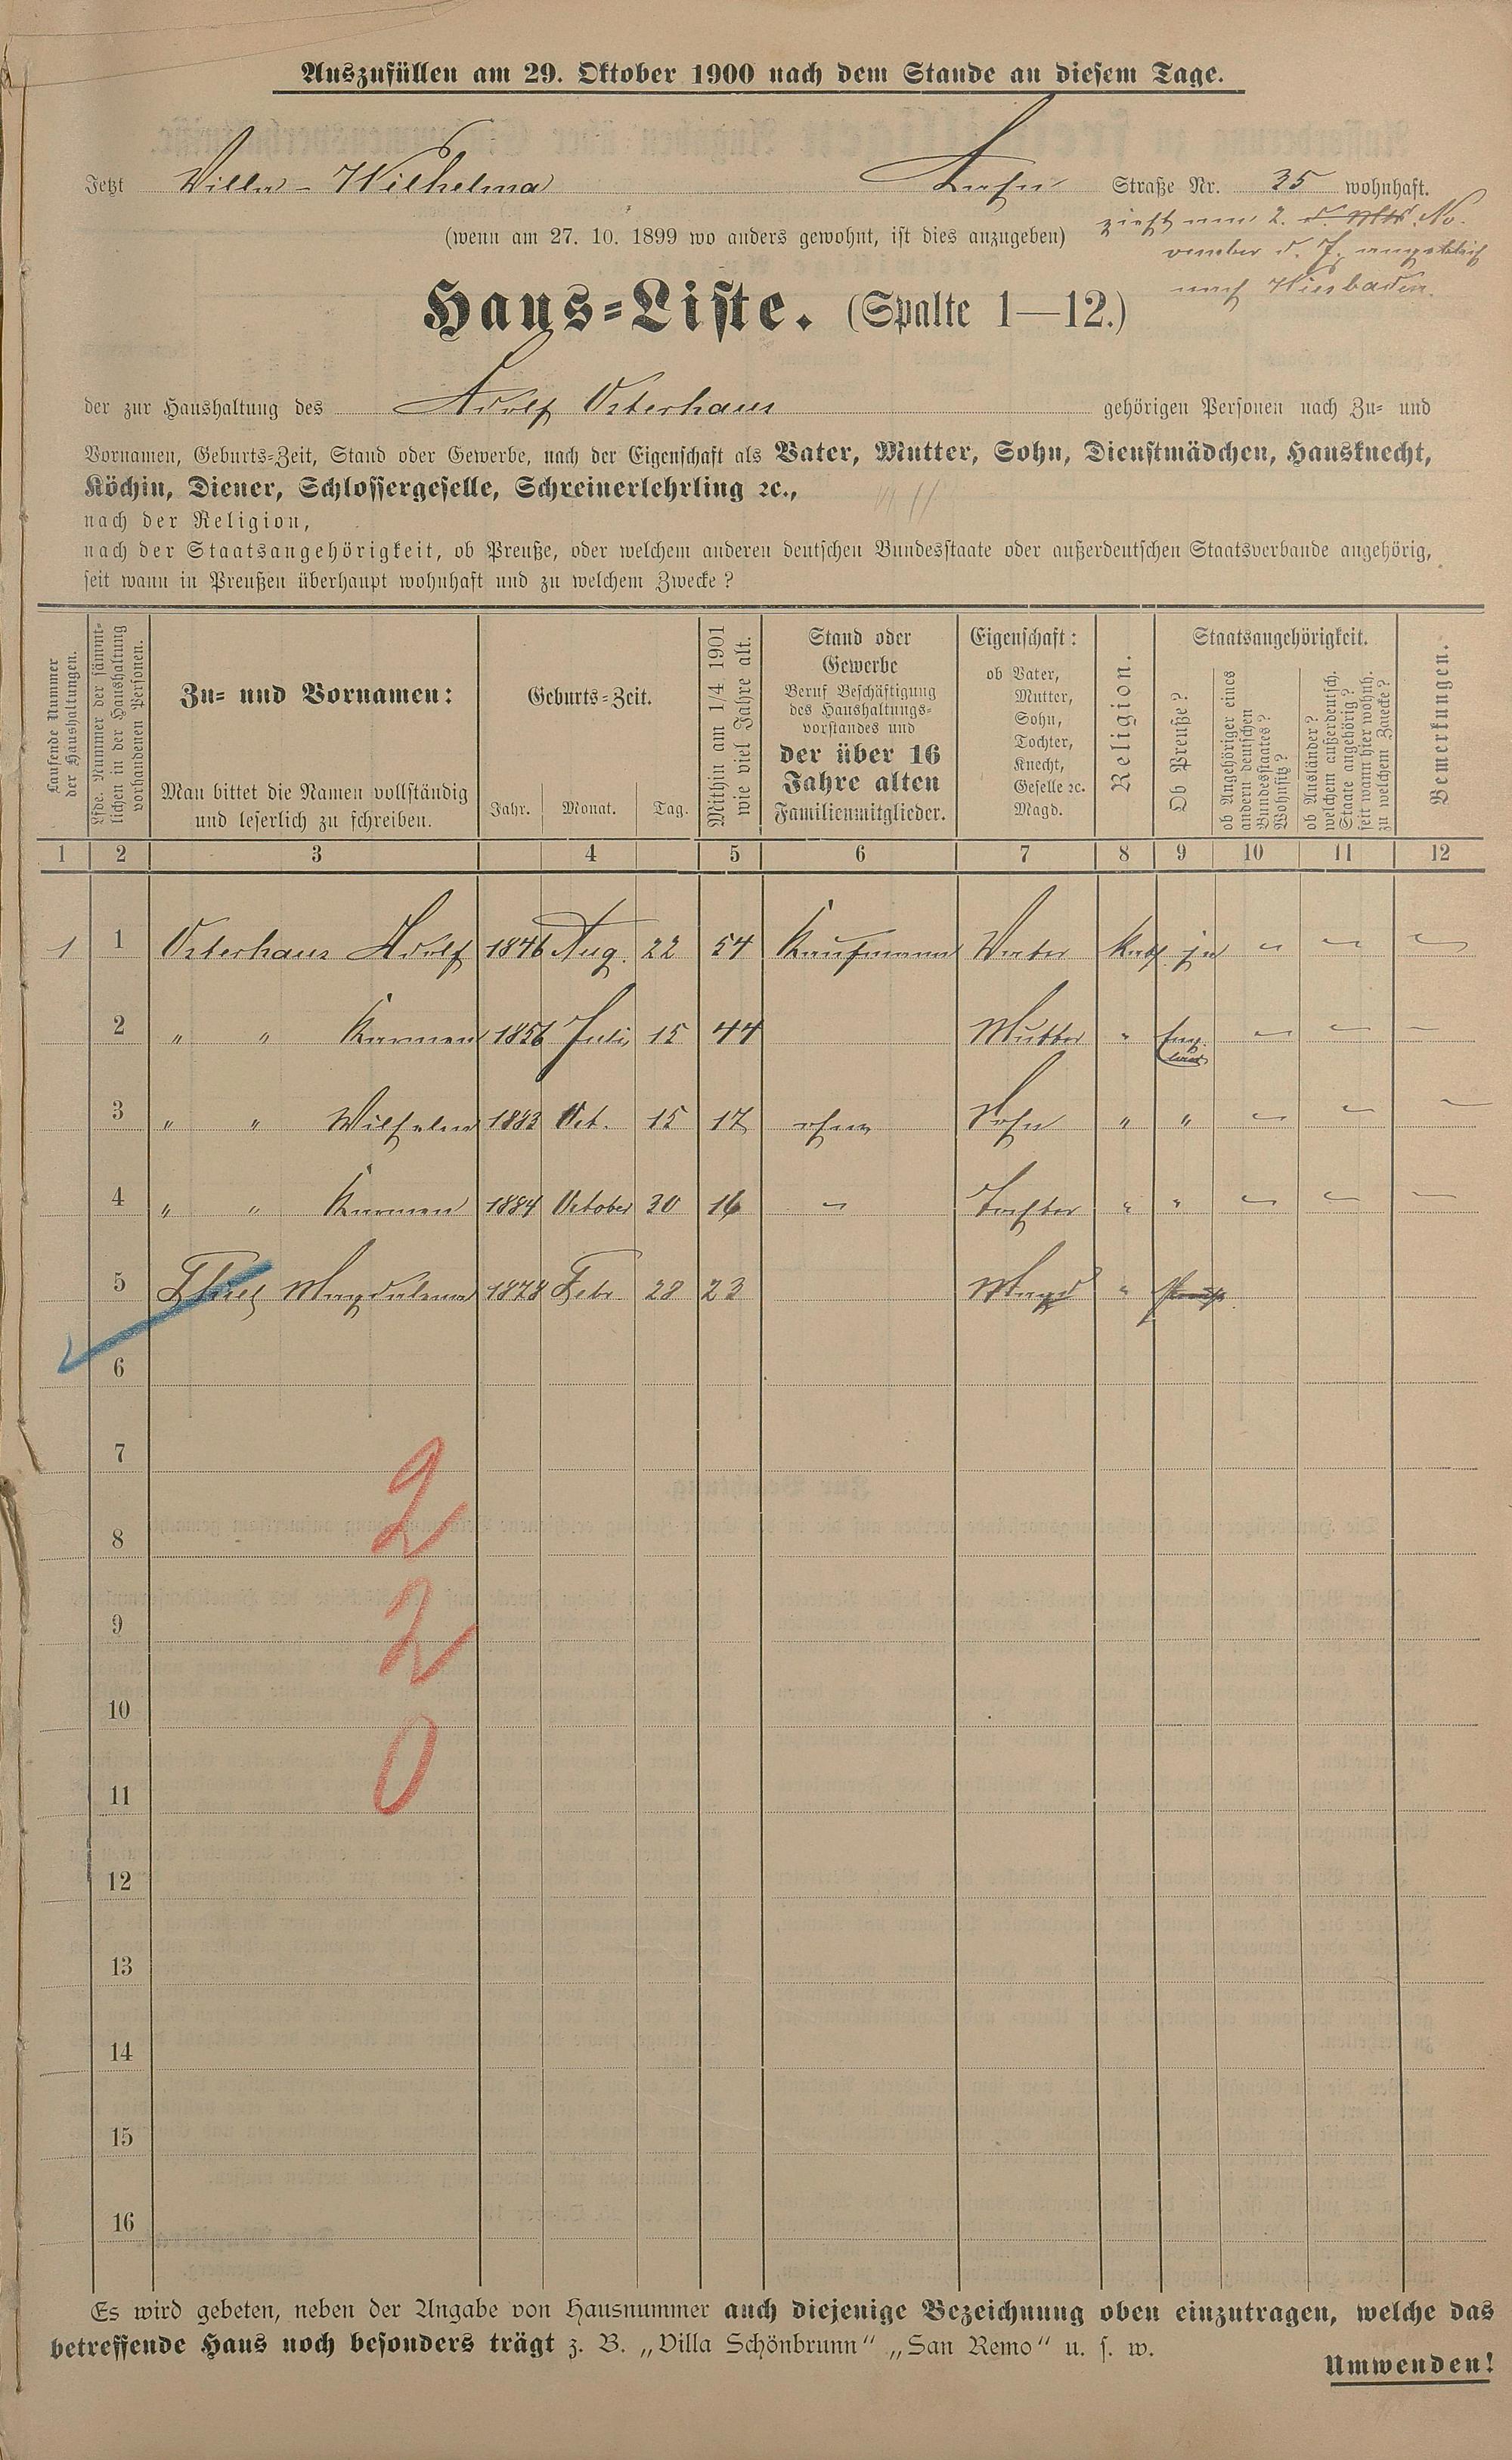 Auszufüllen am 29. Oktober 1900 nach dem Stande an diesem Tage.
Jetzt Villa - Wilhelma Straße Nr. 35 wohnhaft.
(wenn am 27. 10. 1899 wo anders gewohnt, ist dies anzugeben)
zieht am 2. d. Mts No-
vember d. J. angeblich
nach Wiesbaden.
Haus-Liste. (Spalte 1—12.)
der zur Haushaltung des Adolf Osterhaus gehörigen Personen nach Zu- und
Vornamen, Geburts-Zeit, Stand oder Gewerbe, nach der Eigenschaft als Vater, Mutter, Sohn, Dienstmädchen, Hausknecht,
Köchin, Diener, Schlossergeselle, Schreinerlehrling ꝛc.,
nach der Religion,
nach der Staatsangehörigkeit, ob Preuße, oder welchem anderen deutschen Bundesstaate oder außerdeutschen Staatsverbande angehörig,
seit wann in Preußen überhaupt wohnhaft und zu welchem Zwecke?
Laufende Nummer
der Haushaltungen.
Lfde. Nummer der sämmt-
lichen in der Haushaltung
vorhandenen Personen.
Zu- und Vornamen:
Man bittet die Namen vollständig
und leserlich zu schreiben.
Geburts-Zeit.
Jahr. Monat. Tag.
Mithin am 1/4 1901
wie viel Jahre alt.
Stand oder
Gewerbe
Beruf Beschäftigung
des Haushaltungs-
vorstandes und
der über 16
Jahre alten
Familienmitglieder.
Eigenschaft:
ob Vater,
Mutter,
Sohn,
Tochter,
Knecht,
Geselle ꝛc.
Magd.
Religion.
Staatsangehörigkeit.
Ob Preuße?
ob Angehöriger eines
andern deutschen
Bundesstaates?
Wohnsitz?
ob Ausländer?
welchem außerdeutsch.
Staate angehörig?
seit wann hier wohnh.
zu welchem Zwecke?
Bemerkungen.
1 2 3 4 5 6 7 8 9 10 11 12
1 1 Osterhaus Adolf 1846 Aug. 22 54 Kaufmann Vater Kath ja — — —
2 " " Karmen 1856 Juli 15 44 Mutter " Eng-land — — —
3 " " Wilhelm 1883 Oct. 15 17 ohne Sohn " " — — —
4 " " Karmen 1884 October 30 16 — Tochter " " — — —
5 Magdalena 1878 Febr. 28 23 Magd "
6
7
8
9
10
11
12
13
14
15
16
2
2
0
Es wird gebeten, neben der Angabe von Hausnummer auch diejenige Bezeichnung oben einzutragen, welche das
betreffende Haus noch besonders trägt z. B. „Villa Schönbrunn“ „San Remo“ u. s. w.
Umwenden!